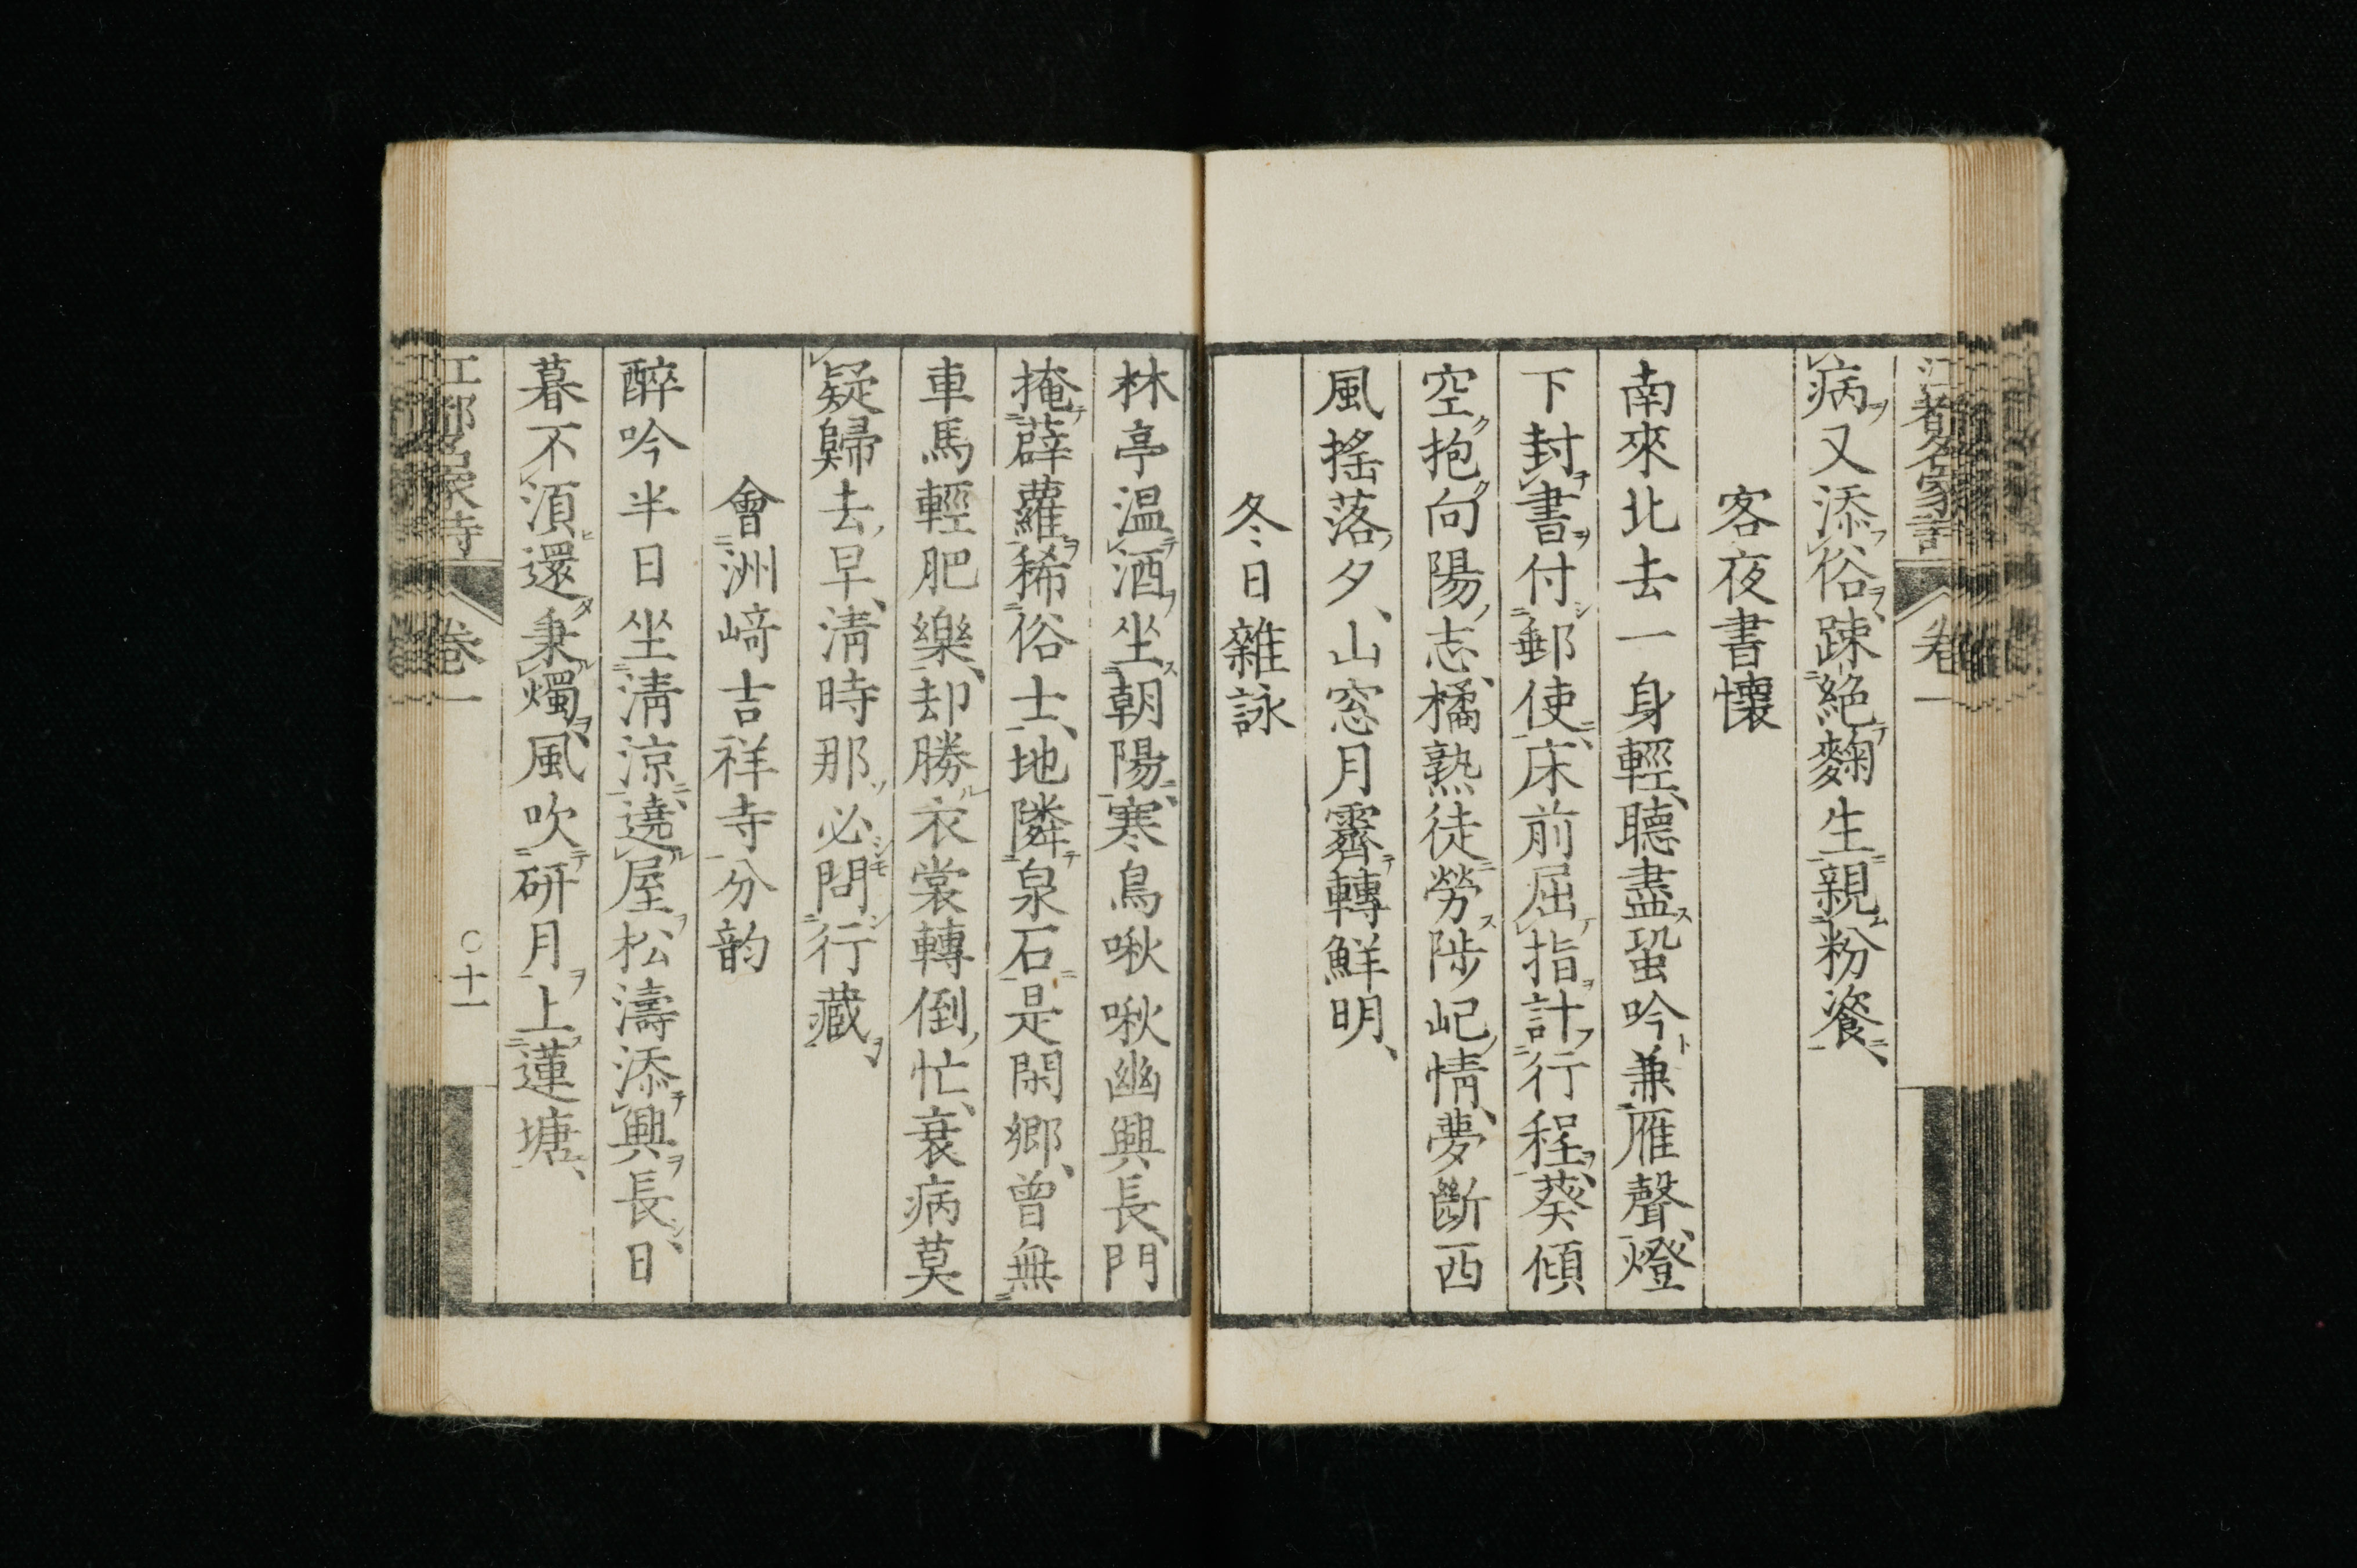 江都名家詩
卷一
病又添俗踈絕麴生親粉瓷
客夜書懷
南來北去一身輕聽盡蛩吟兼雁聲燈
下封書付郵使床前屈指計行程葵傾
空抱向陽志橘熟徒勞陟屺情夢斷西
風搖落夕山窓月霽轉鮮明
冬日雜詠
林亭温酒坐朝陽寒鳥啾啾幽興長門
掩薜蘿稀俗士地隣泉石是閑鄉曾無
車馬輕肥樂却勝衣裳轉倒忙衰病莫
疑歸去早清時那必問行藏
會洲﨑吉祥寺分韵
醉吟半日坐清涼遶屋松濤添興長日
暮不湏還秉燭風吹研月上蓮塘
江都名家詩
卷一
〇十一